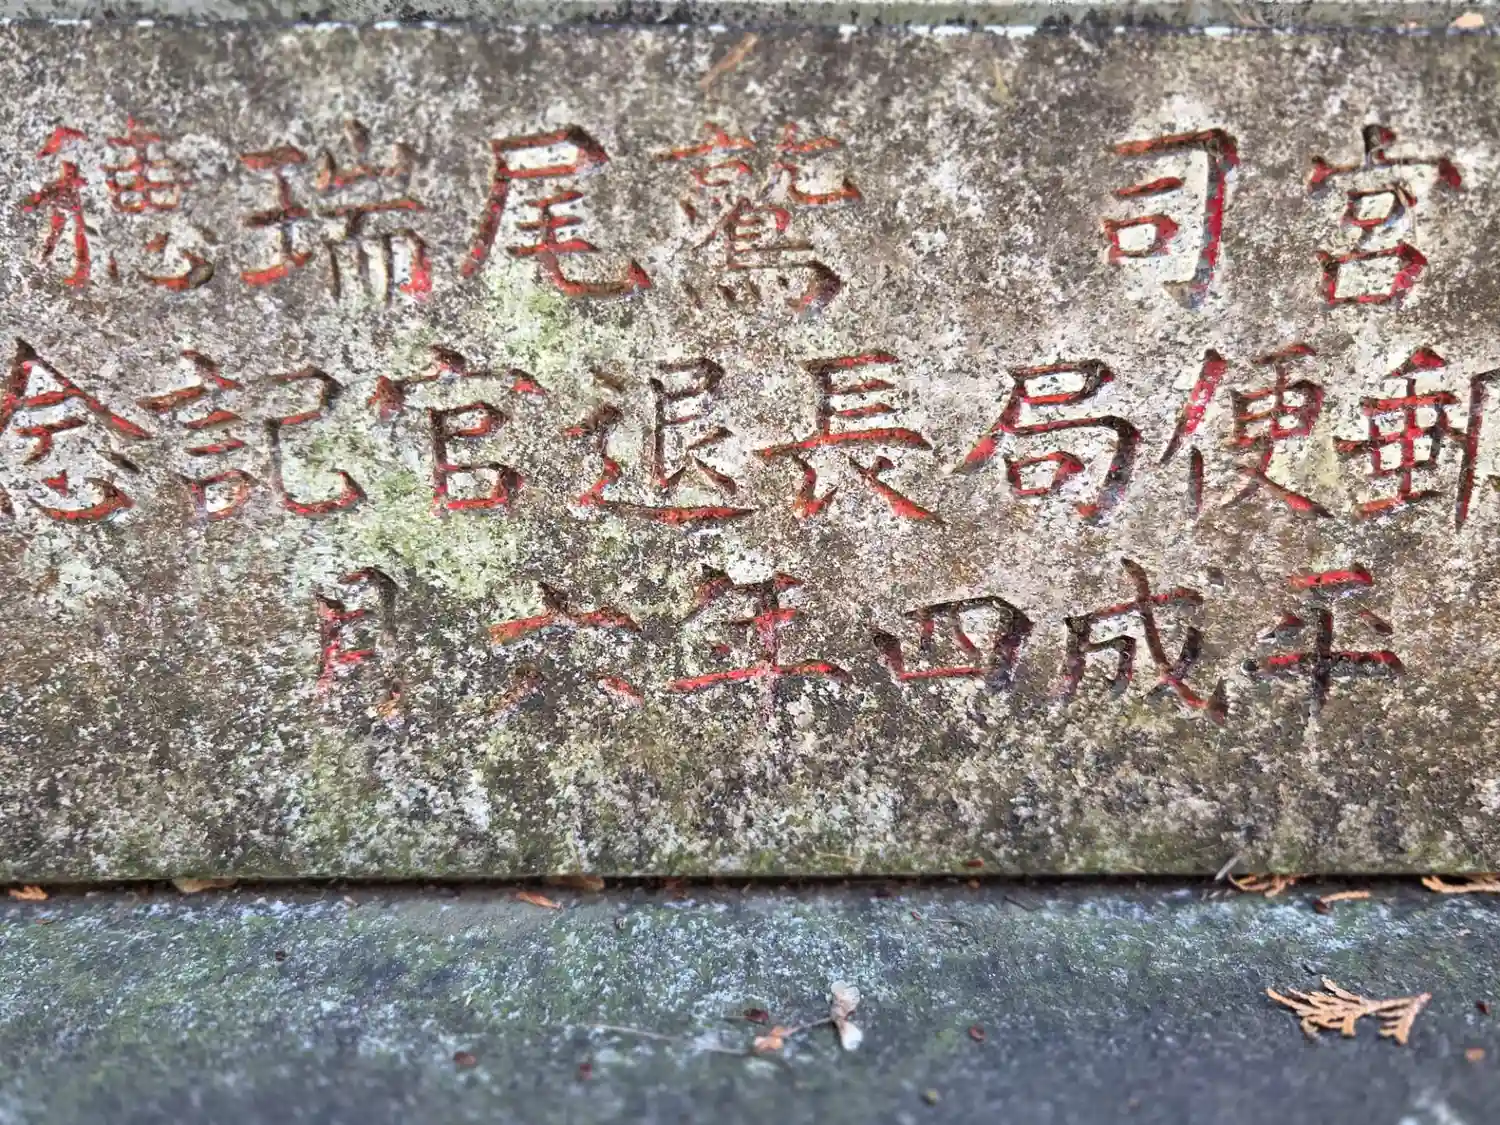 宮司 鷲尾瑞穂
郵便局長退官記念
平成四年六月